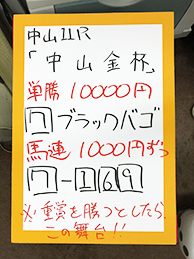 中山11R
「中山金杯」
単勝10000円
7ブラックバゴ
馬連1000円ずつ
7-1 6 9
※重賞を勝つとしたら、
この舞台!!